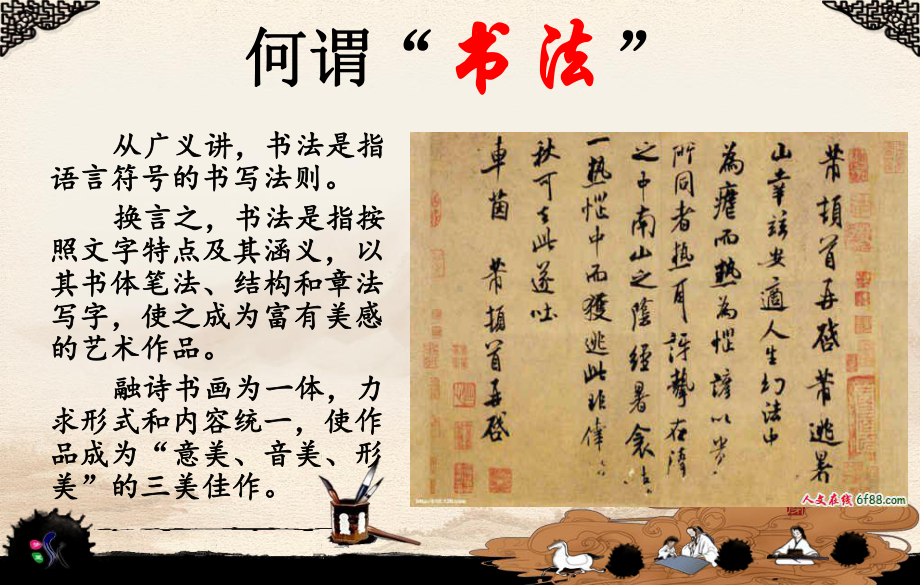 何谓“书法”
从广义讲，书法是指
语言符号的书写法则。
换言之，书法是指按
照文字特点及其涵义，以
其书体笔法、结构和章法
写字，使之成为富有美感
的艺术作品。
融诗书画为一体，力
求形式和内容统一，使作
品成为“意美、音美、形
美”的三美佳作。
芾頓首再啓芾逃暑
山幸兹安適人生幻法中
為虐而熱為惱諦以貴
所同者熱耳訝挈在清
之中南山之陰經暑衾
一熱惱中而獲逃此非偉
秋可去此遂吐
車茵 芾頓首再啓
人文在线 6f88.com